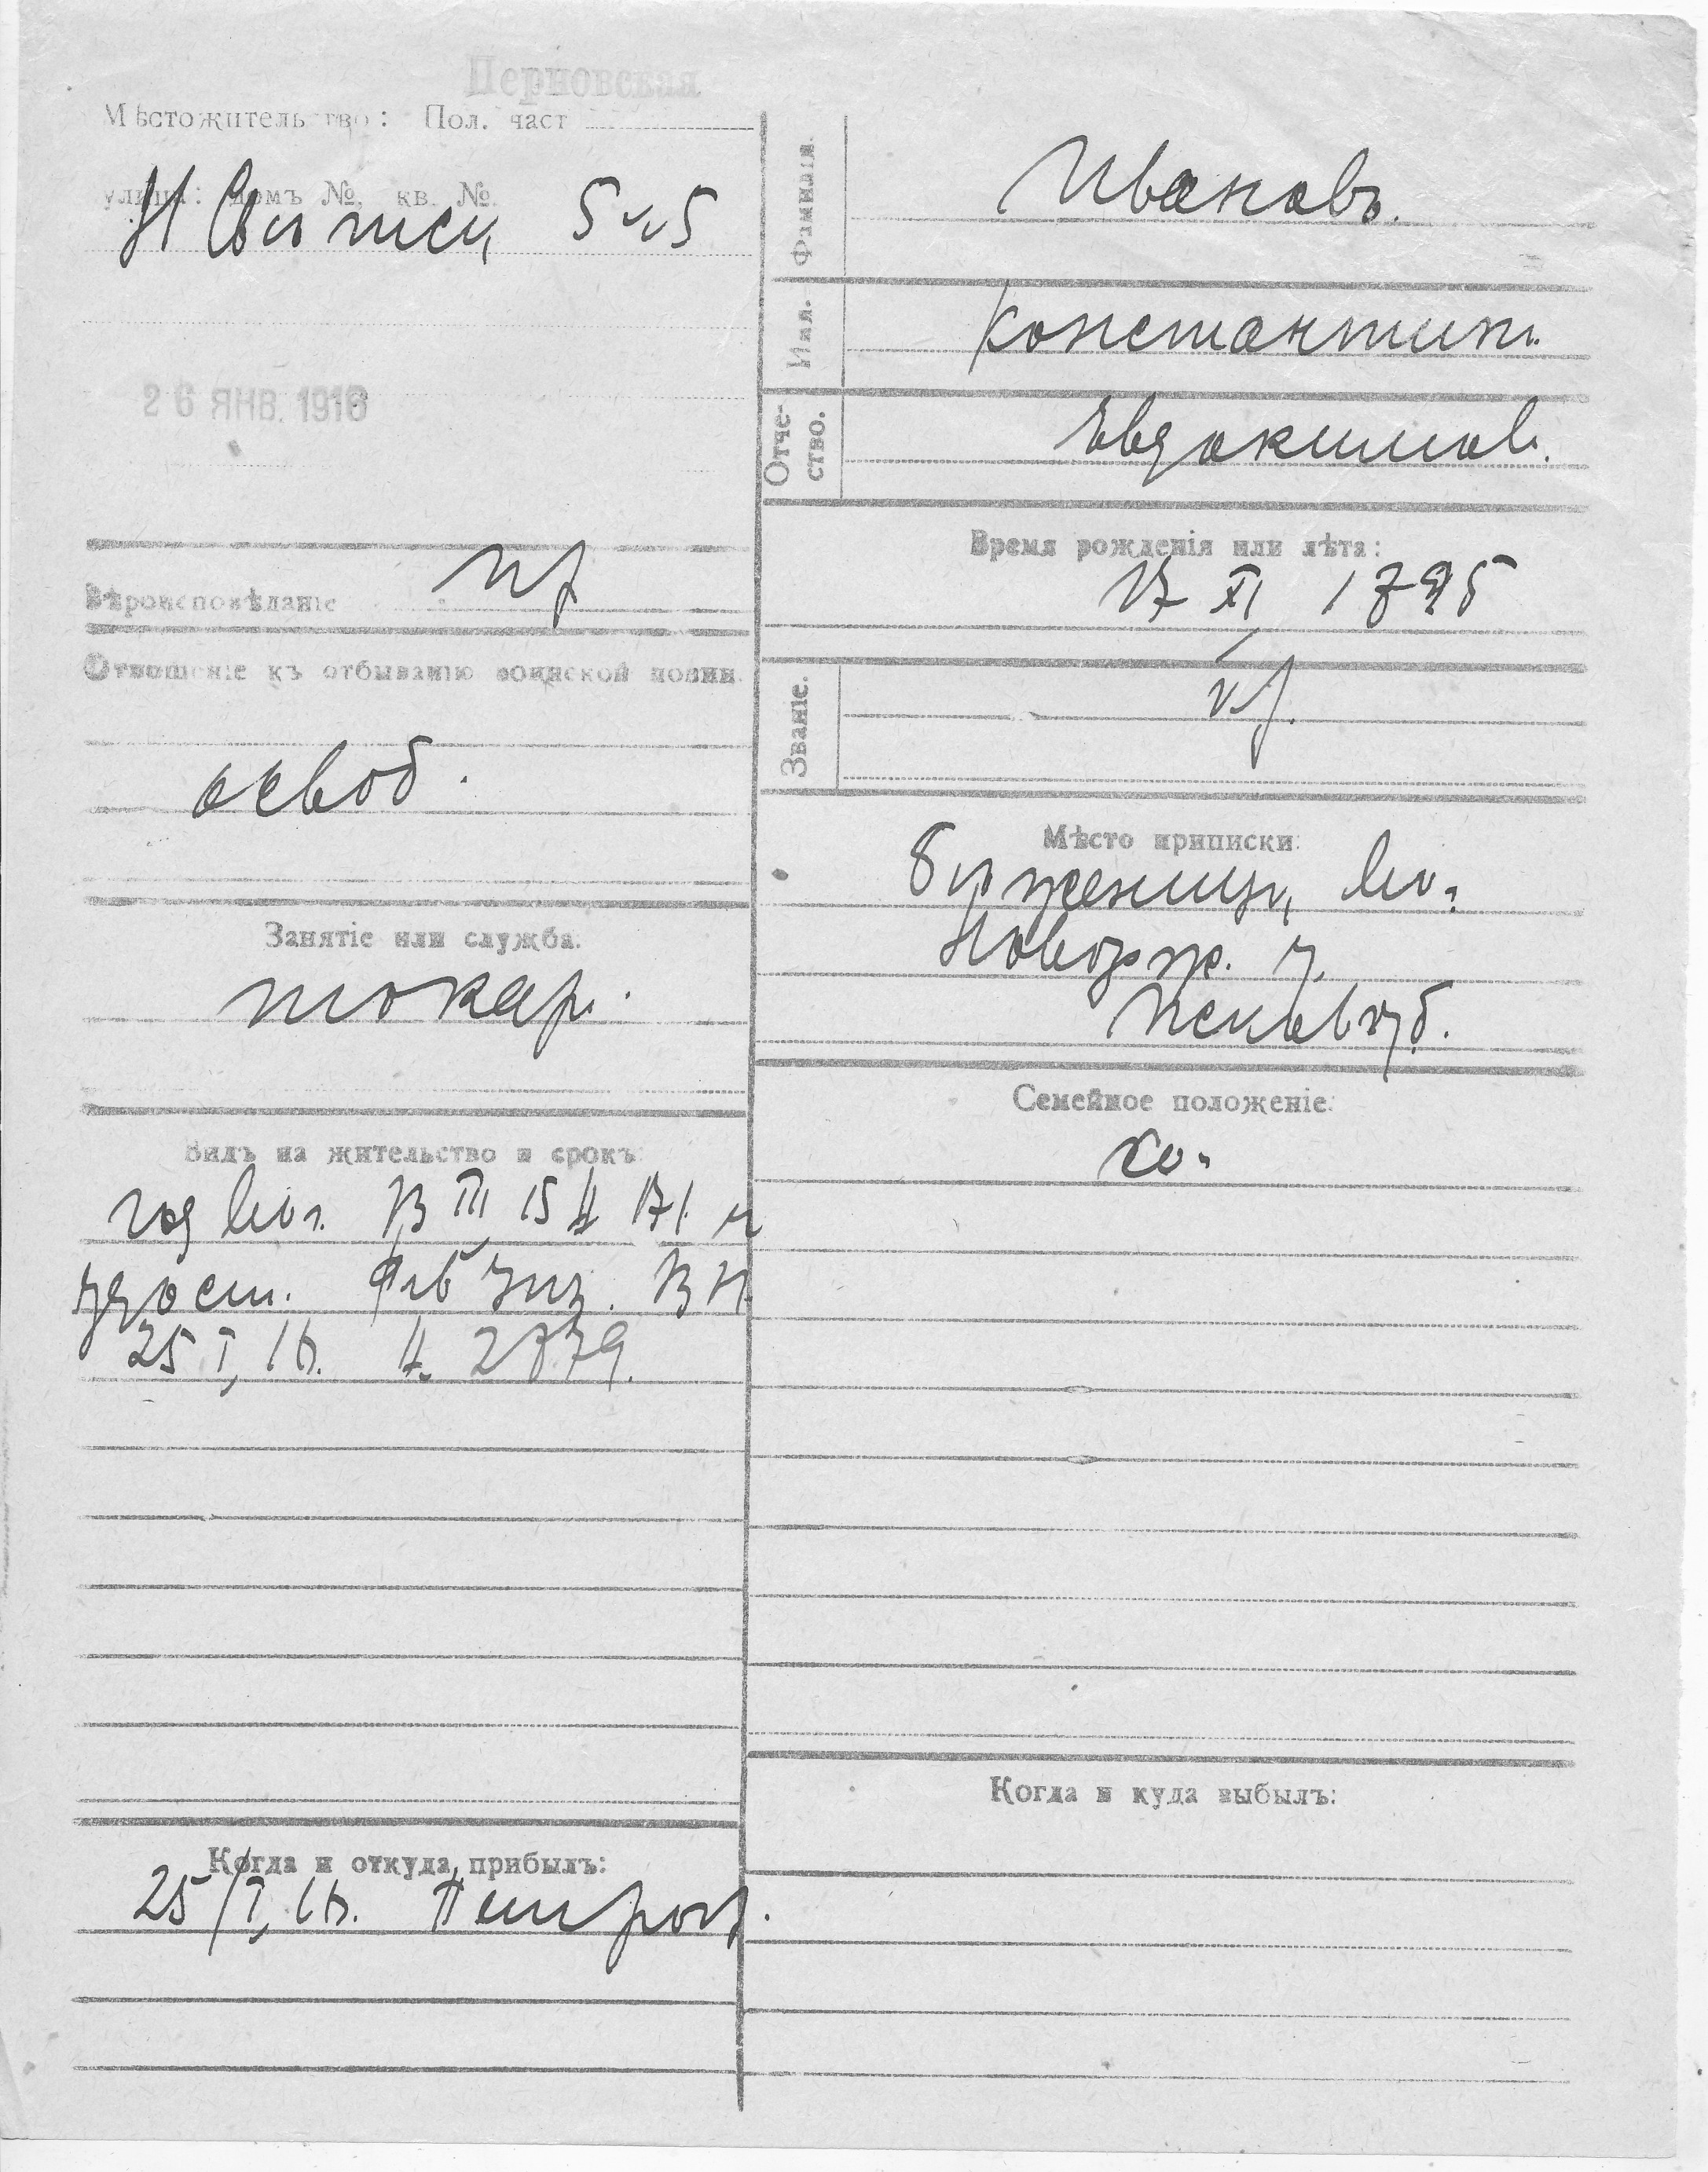 Перновская
Мѣстожительство: Пол. част
улица: домъ №, кв. №.
5 5
26 ЯНВ. 1916
Вѣроисповѣданіе
пр
Отношеніе къ отбыванію воинской повин.
освоб.
Занятіе или служба.
токарь.
Видъ на жительство и срокъ:
год вол. III 15 171
удост.
25 I, 16. 2879.
Когда и откуда прибылъ:
25/I, 16. Петрогр.
Фамилія.
Ивановъ.
Имя.
Константинъ.
Отче-
ство.
Евдокимов.
Время рожденія или лѣта:
17 XI 1895
Званіе.
кр.
Мѣсто приписки:
вол.
Новорж. у.
Псков губ.
Семейное положеніе:
хол.
Когда и куда выбылъ: